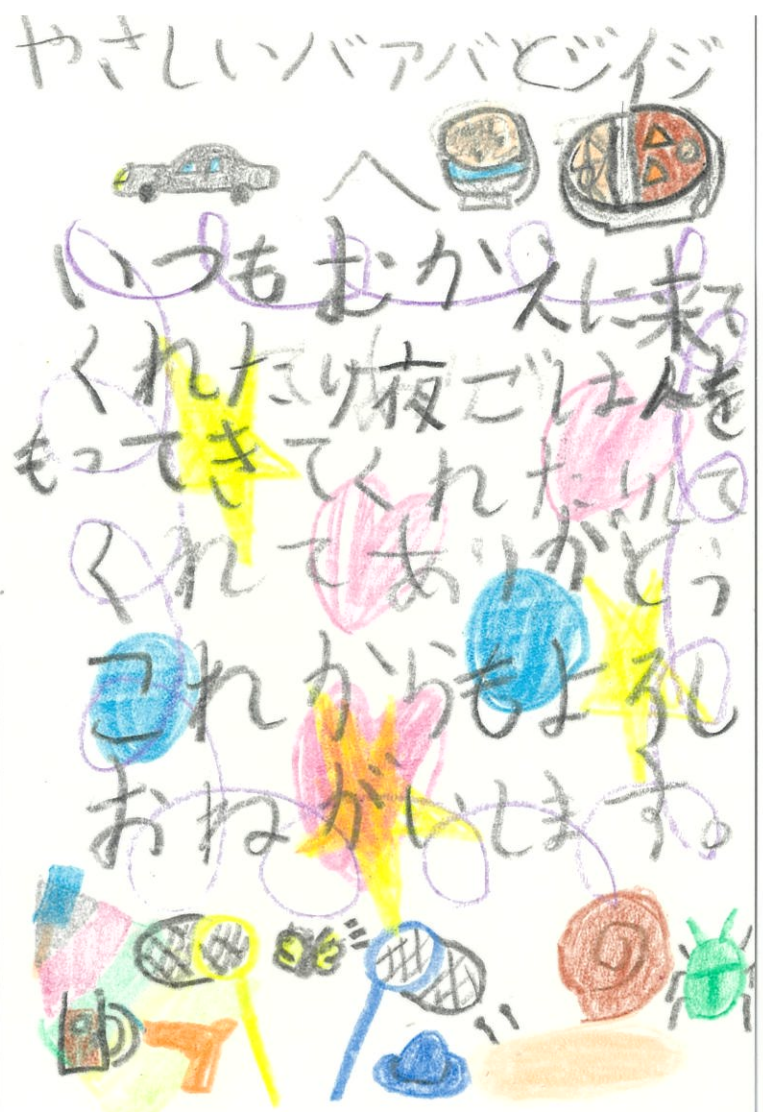 やさしいバァバとジイジ
へ
いつもむかえに来て
くれたり夜ごはんを
もってきてくれたりして
くれてありがとう
これからもよろしく
おねがいします。